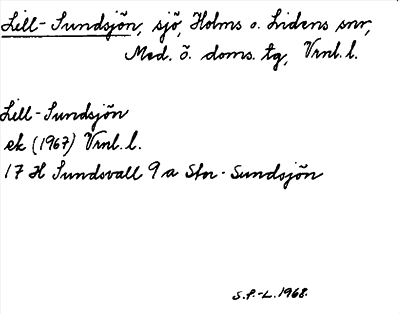 Lill-Sundsjön, sjö, Holms o. Lidens snr,
Med. ö. doms. tg, Vrnl. l.
Lill-Sundsjön
ek (1967) Vrnl. l.
17 H Sundsvall 9 a Stor-Sundsjön
S.F.-L. 1968.